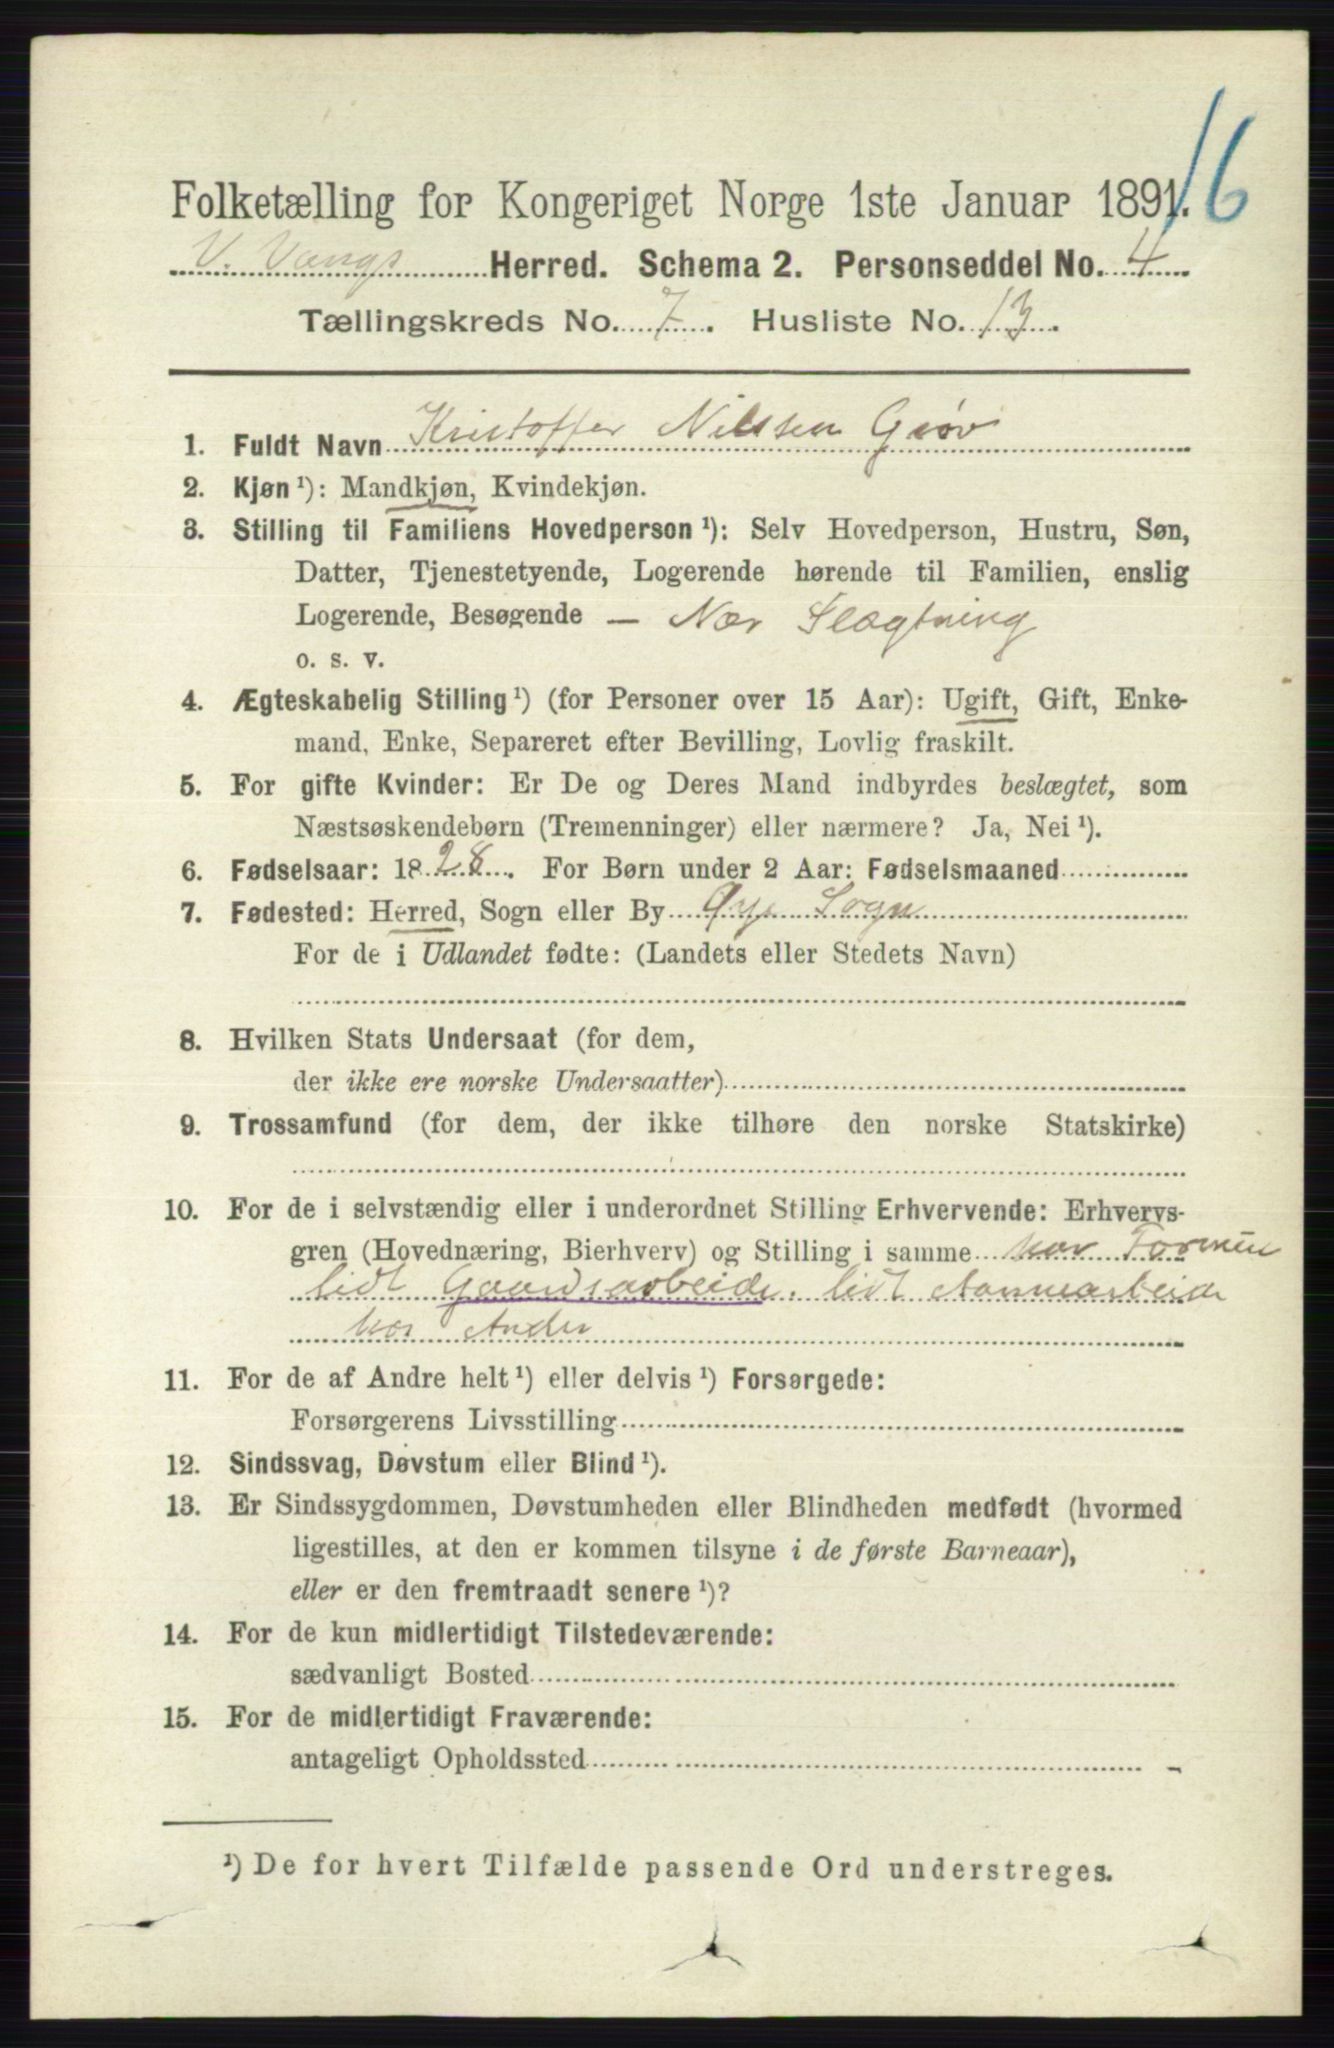 16
Folketælling for Kongeriget Norge 1ste Januar 1891.
V. Vangs Herred. Schema 2. Personseddel No. 4
Tællingskreds No. 7. Husliste No. 13.
1. Fuldt Navn Kristoffer Nilssen Grøv
2. Kjøn ¹): Mandkjøn, Kvindekjøn.
3. Stilling til Familiens Hovedperson ¹): Selv Hovedperson, Hustru, Søn,
Datter, Tjenestetyende, Logerende hørende til Familien, enslig
Logerende, Besøgende — Nær Slægtning
o. s. v.
4. Ægteskabelig Stilling ¹) (for Personer over 15 Aar): Ugift, Gift, Enke-
mand, Enke, Separeret efter Bevilling, Lovlig fraskilt.
5. For gifte Kvinder: Er De og Deres Mand indbyrdes beslægtet, som
Næstsøskendebørn (Tremenninger) eller nærmere? Ja, Nei ¹).
6. Fødselsaar: 1828. For Børn under 2 Aar: Fødselsmaaned
7. Fødested: Herred, Sogn eller By Øye Sogn
For de i Udlandet fødte: (Landets eller Stedets Navn)
8. Hvilken Stats Undersaat (for dem,
der ikke ere norske Undersaatter)
9. Trossamfund (for dem, der ikke tilhøre den norske Statskirke)
10. For de i selvstændig eller i underordnet Stilling Erhvervende: Erhvervs-
gren (Hovednæring, Bierhverv) og Stilling i samme har
lidt Gaardsarbeide, lidt
hos Andre
11. For de af Andre helt ¹) eller delvis ¹) Forsørgede:
Forsørgerens Livsstilling
12. Sindssvag, Døvstum eller Blind ¹).
13. Er Sindssygdommen, Døvstumheden eller Blindheden medfødt (hvormed
ligestilles, at den er kommen tilsyne i de første Barneaar),
eller er den fremtraadt senere ¹)?
14. For de kun midlertidigt Tilstedeværende:
sædvanligt Bosted
15. For de midlertidigt Fraværende:
antageligt Opholdssted
¹) De for hvert Tilfælde passende Ord understreges.